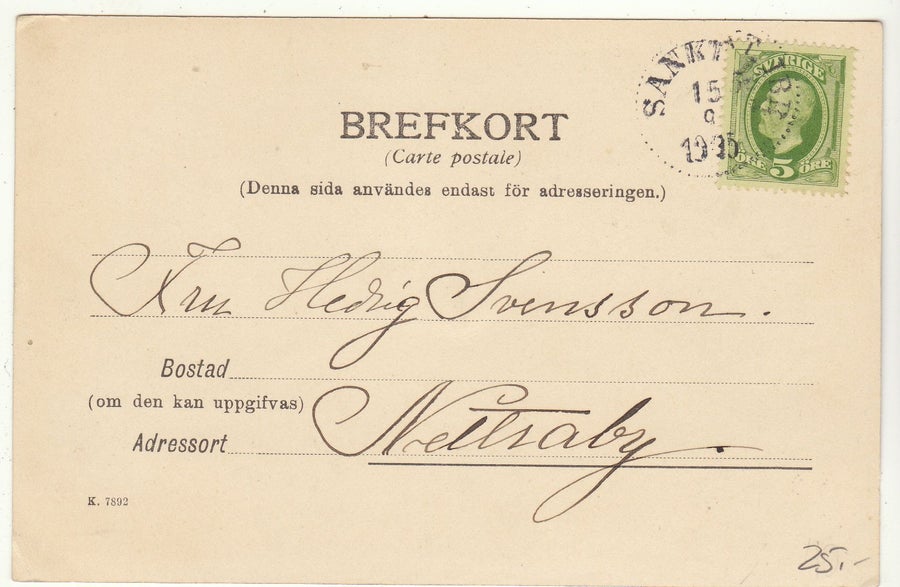 SANKT
15
9
1905
SVERIGE
ÖRE 5 ÖRE
BREFKORT
(Carte postale)
(Denna sida användes endast för adresseringen.)
Fru Hedvig Svensson.
Bostad
(om den kan uppgifvas)
Adressort Nettraby.
K. 7892
25.-